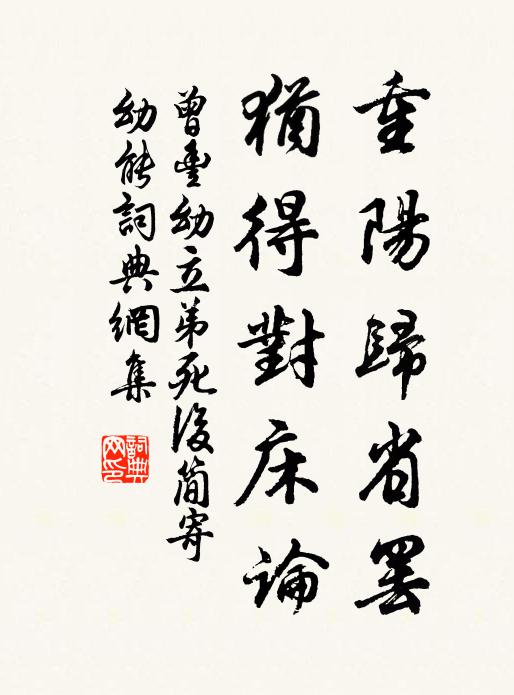 重陽歸省罢
猶得對床論
曾豊幼立弟死後簡寄
幼能詞典網集
詞典网印